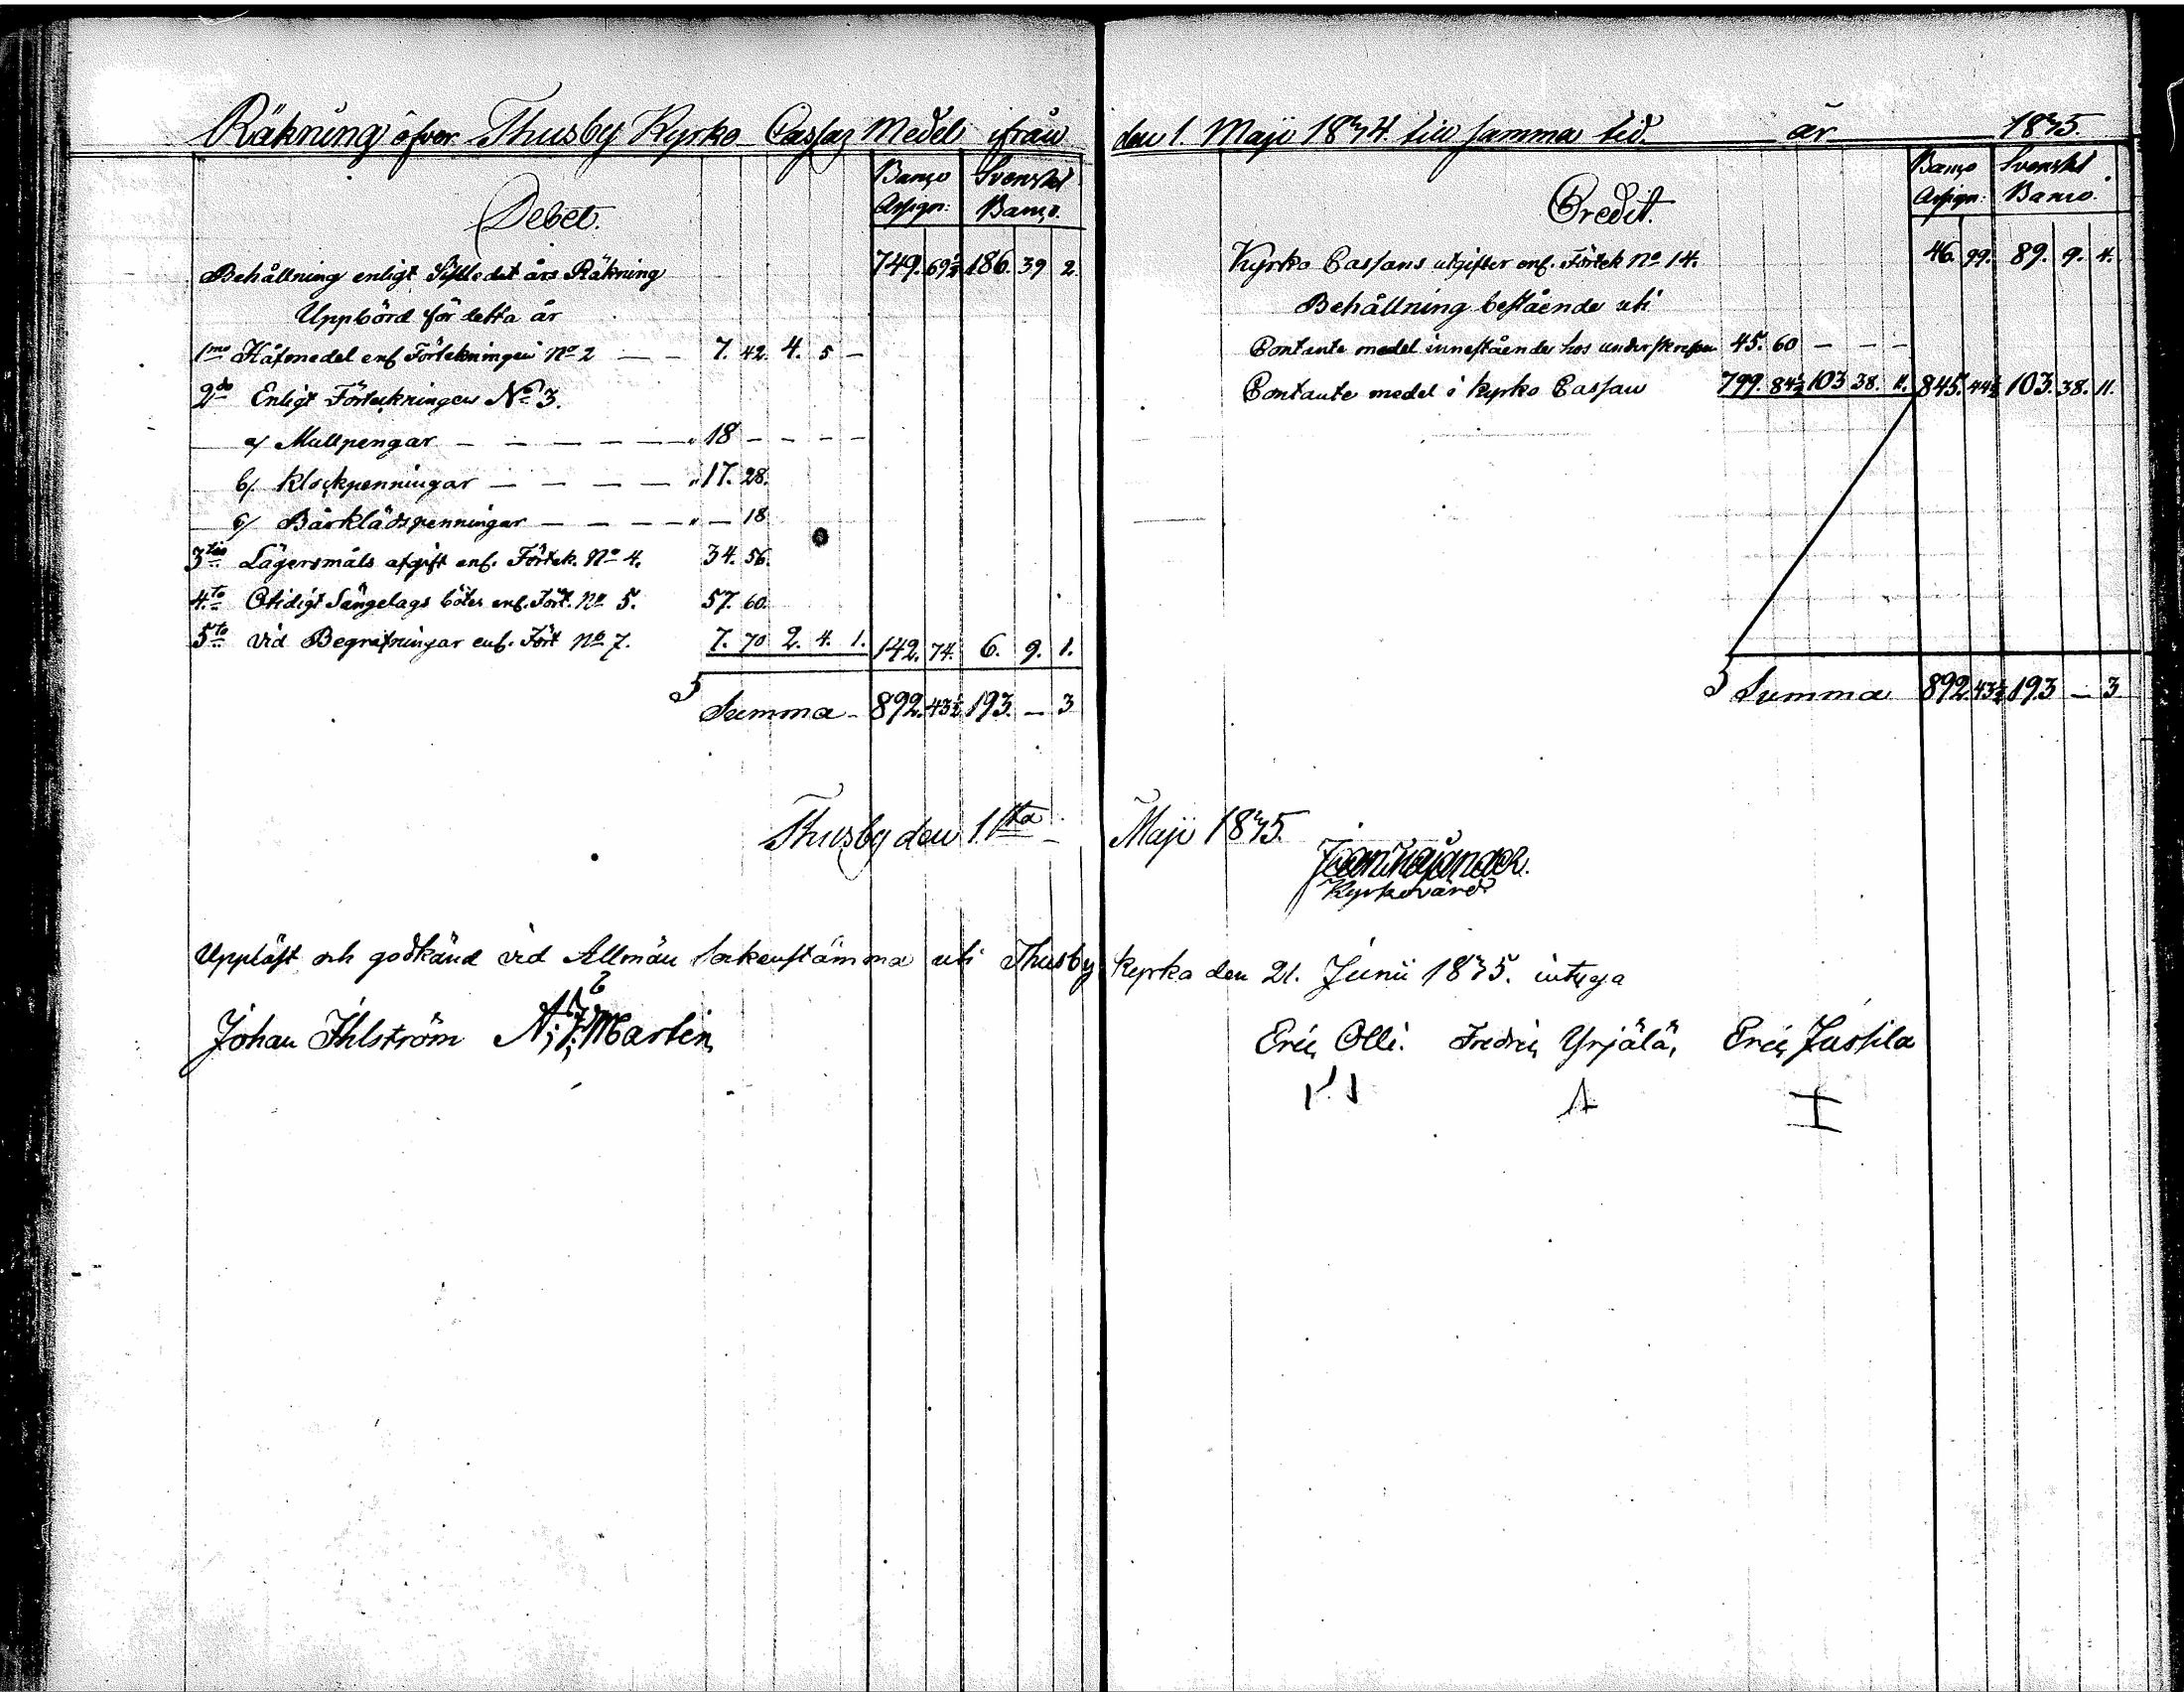 Räkning öfver Thusby Kyrko Cassas Medel ifrån den 1. Maji 1834. till samma tid år 1835.
Debet.
Banco Assign: Svenskt Banco.
Behållning enligt Sistledit års Räkning 749. 69½ 186. 39 2.
Uppbörd för detta år
1mo Håfmedel enl Förtekningen No 2 — — 7. 42. 4. 5 —
2do Enligt Förteckningen No 3.
a/ Mullpengar — — — — — — „ 18 — — — —
b/. Klockpenningar — — — — — „ 17. 28.
c/ Bårklädspenningar — — — — „ — 18
3tio Lägersmåls afgift enl. Förtek. No 4. 34. 56.
4to Otidigt Sängelags böter enl. Fört. No 5. 57. 60.
5to Vid Begrafningar enl. Fört No 7. 7. 70 2. 4. 1. 142. 74. 6. 9. 1.
Summa - 892. 43½ 193. — 3
Credit.
Banco Assign: Svenskt Banco.
Kyrko Cassans utgifter enl. Förtek No 14. 46. 99. 89. 9. 4.
Behållning bestående uti
Contante medel innestående hos 45. 60 — — —
Contante medel i Kyrko Cassan 799. 84½ 103 38. 11. 845. 44½ 103. 38. 11.
Summa 892. 43½ 193 — 3
Thusby den 1sta Maji 1835.
Kyrkovärd
Uppläst och godkänd vid Allmän Sockenstämma uti Thusby kyrka den 21. Junii 1835. intyga
Johan Ihlström Martin Eric Olli. Fredric Yrjälä, Eric Jussila